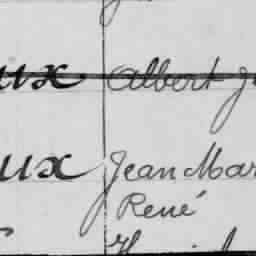 ux Albert
ux Jean Mar
René